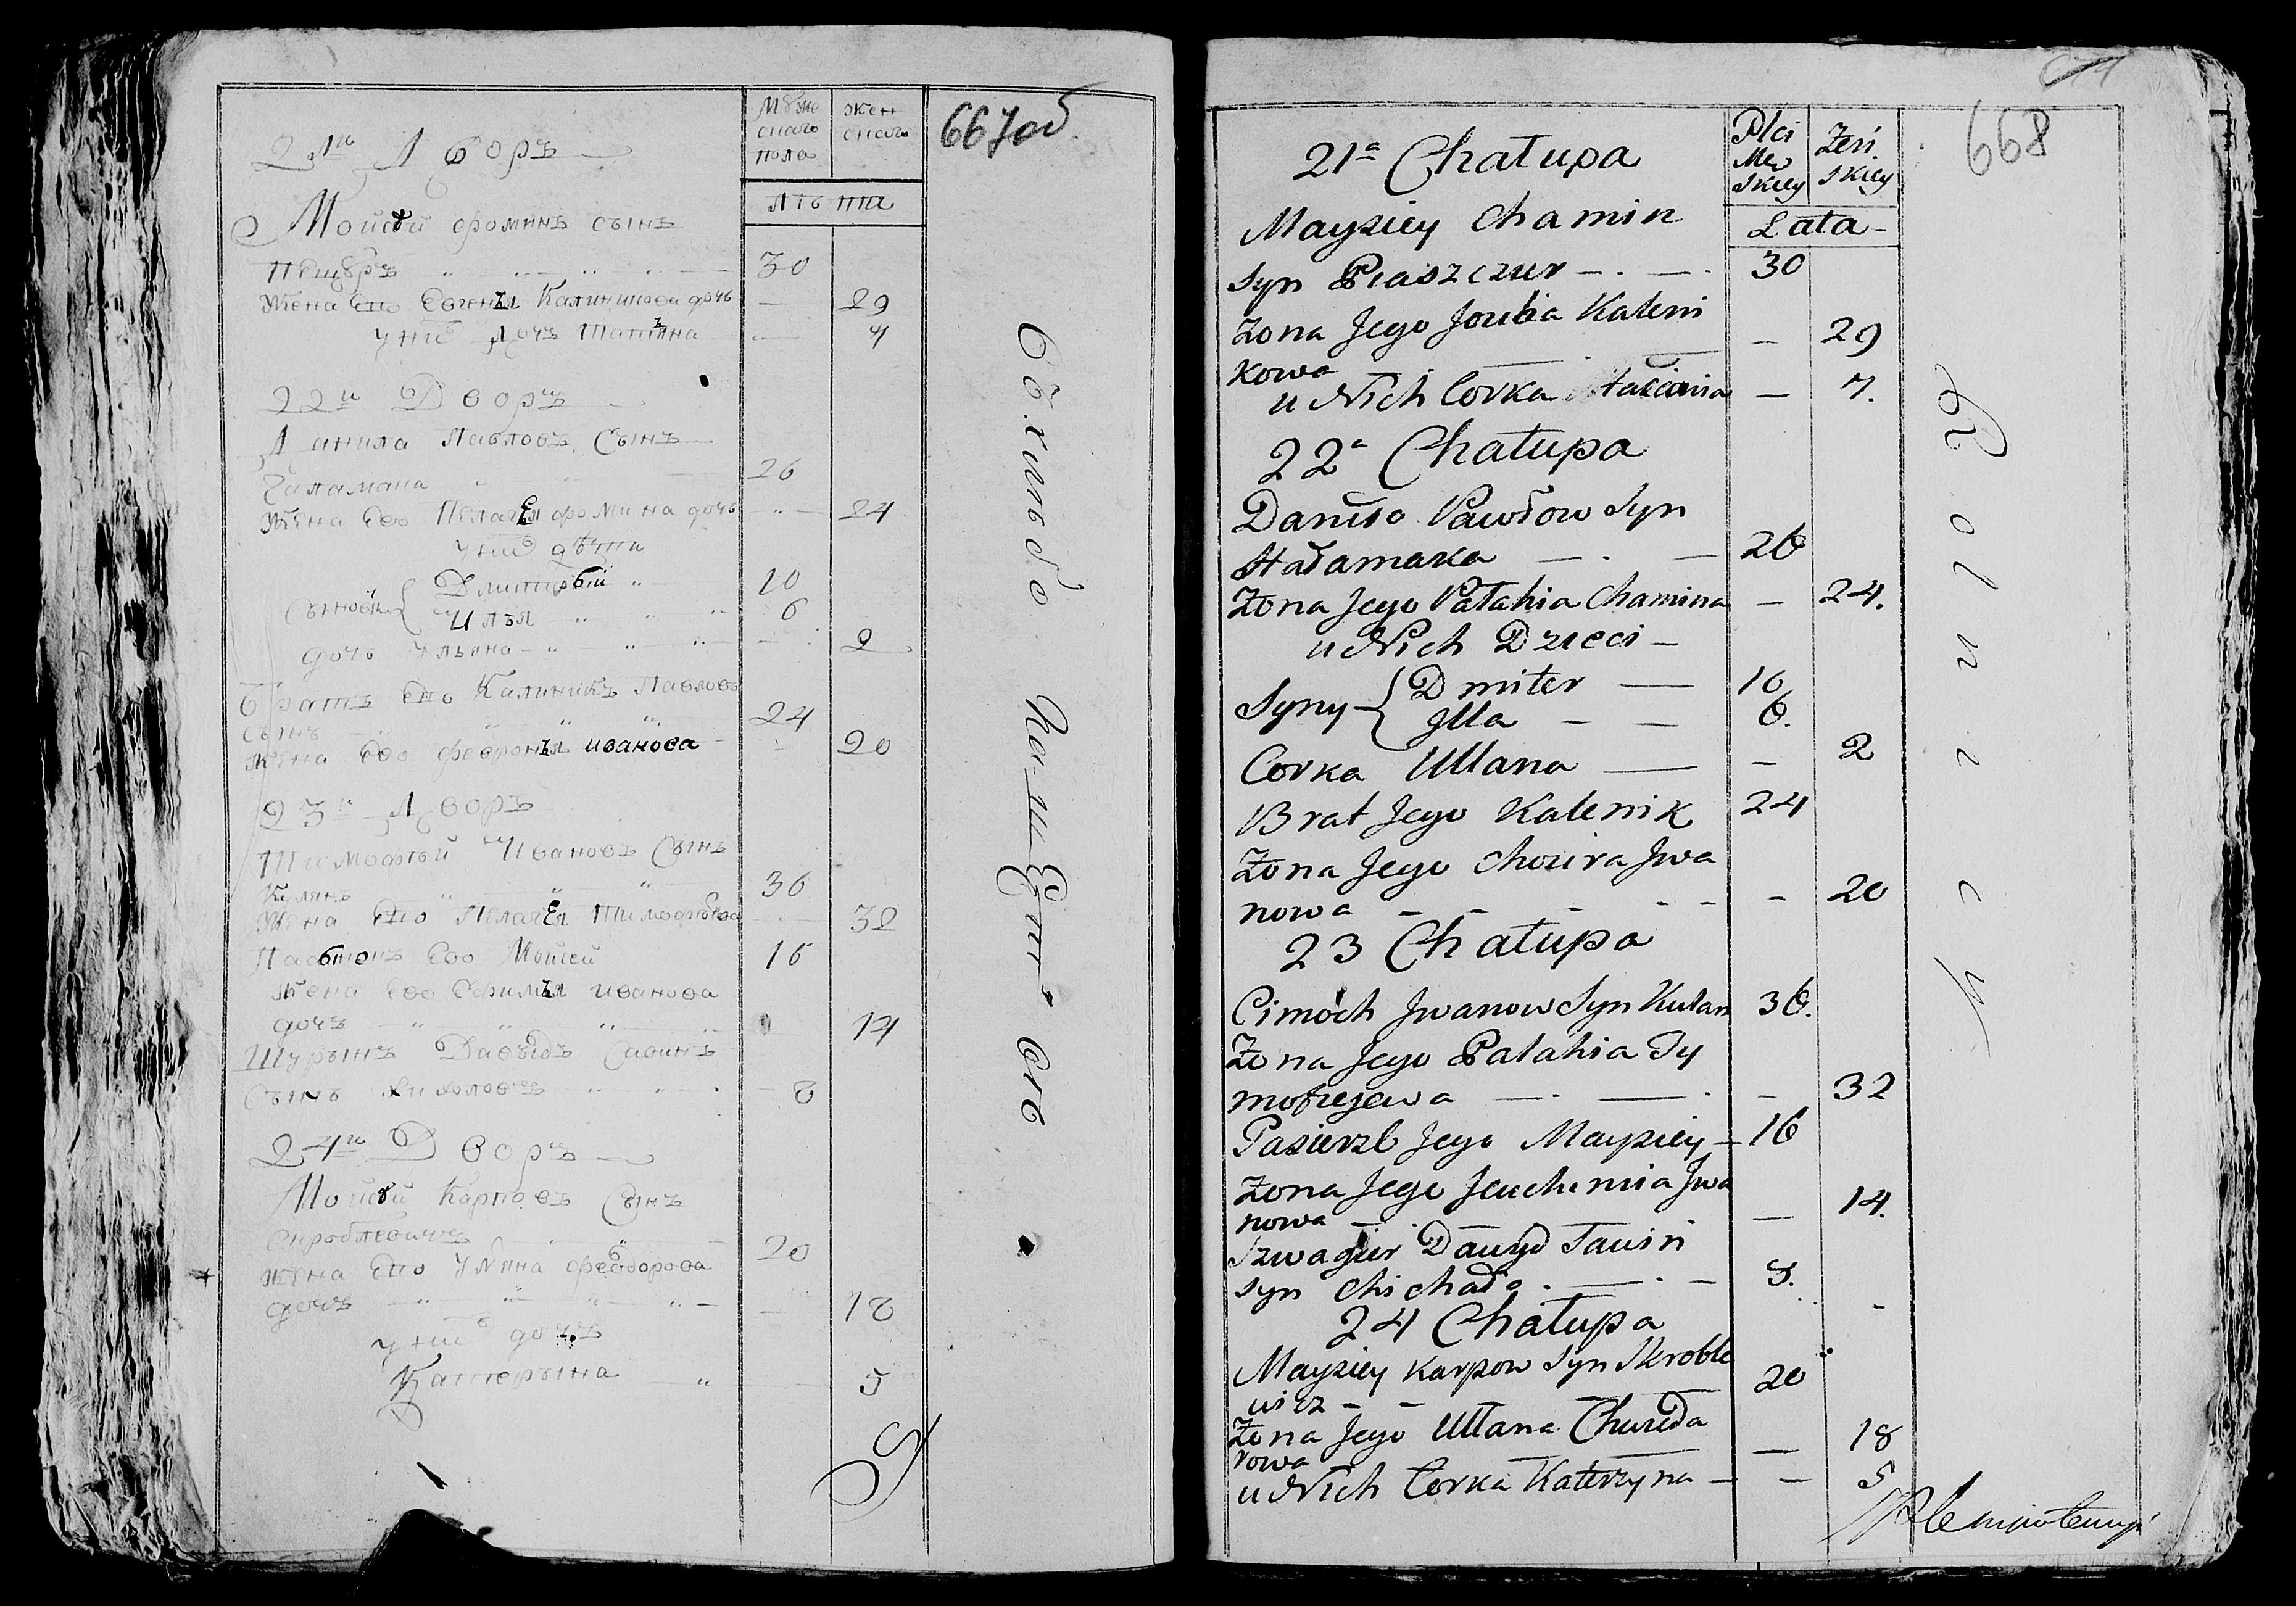 667об.
21й Дворъ
Мойсей Фоминъ сынъ
Пещуръ 30
Жена его Евгенья Калиникова дочь — 29
у нихъ дочь Татьяна — 7
22й Дворъ
Данила Павловъ Сынъ
Галамака 26
Жена его Пелагея Фомина дочь — 24
у нихъ дѣти
Сыновья Дмитрей 10
Илья 6
дочь Ульяна — 2
Братъ его Калиникъ Павловъ
Сынъ 24
Жена его Февронья Иванова — 20
23й Дворъ
Тимофей Ивановъ Сынъ
36
Жена его Пелагея Тимофеева — 32
его Мойсей 16
Жена его Ефимья Иванова
дочь 14
Шурынъ Давыдъ Савинъ
Сынъ 8
24й Дворъ
Мойсей Карповъ Сынъ
Скроблевичъ 20
Жена его Ульяна Феодорова
дочь — 18
у нихъ дочь
Катерына — 5
Мужескаго пола
Женскаго
Лѣта
668
21a Chałupa
Mayziey Chamin
Syn Piaszczur — 30
Żona Jego Jouhia Kaleni
kowa — 29
u Nich Corka — 7.
22a Chałupa
Daniło Pawłow Syn
Hałamaka — 26
Żona Jego Pałahia Chamina — 24.
u Nich Dzieci —
Syny Dmiter — 10
Jlla — 6.
Corka Ullana — 2
Brat Jego Kalenik 24
Żona Jego Jwa
nowa — 20
23 Chałupa
Cimoch Jwanow Syn Kulan 36.
Żona Jego Pałahia Ty
mofiejewa — 32
Pasierzb Jego Mayziey — 16
Żona Jego Jeuchimia Jwa
nowa — 14.
Szwagier Dauyd Sawin
Syn Chichało — 8.
24 Chałupa
Mayziey Karpow Syn Skroble
wicz — 20
Żona Jego Ullana Chwieda
rowa — 18
u Nich Corka Katerzyna — 5
Płci Męskiey
Żeńskiey
Lata